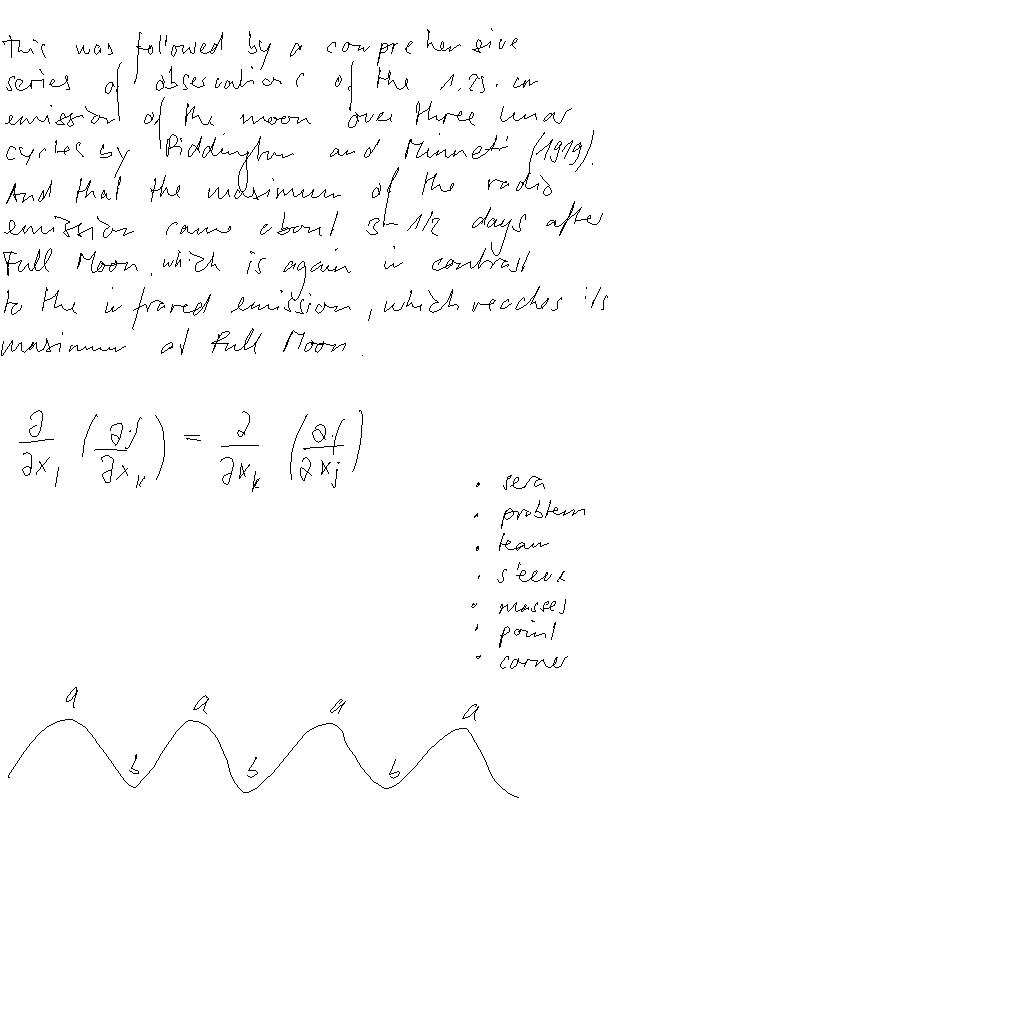 This was followed by a comprehensive
series of observations of the 1.25. cm
emission of the moon over three lunar
cycles by Piddington and Minnett (1919).
And that the maximum of the radio
emission came about 3-1/2 days after
Full Moon, which is again in contrast
to the infrared emission, which reaches its
maximum at Full Moon.
∂/∂x_j (∂f/∂x_k) = ∂/∂x_k (∂f/∂x_j)
• sera
• problem
• team
•
• masses
• point
• corner
a a a a
b b b